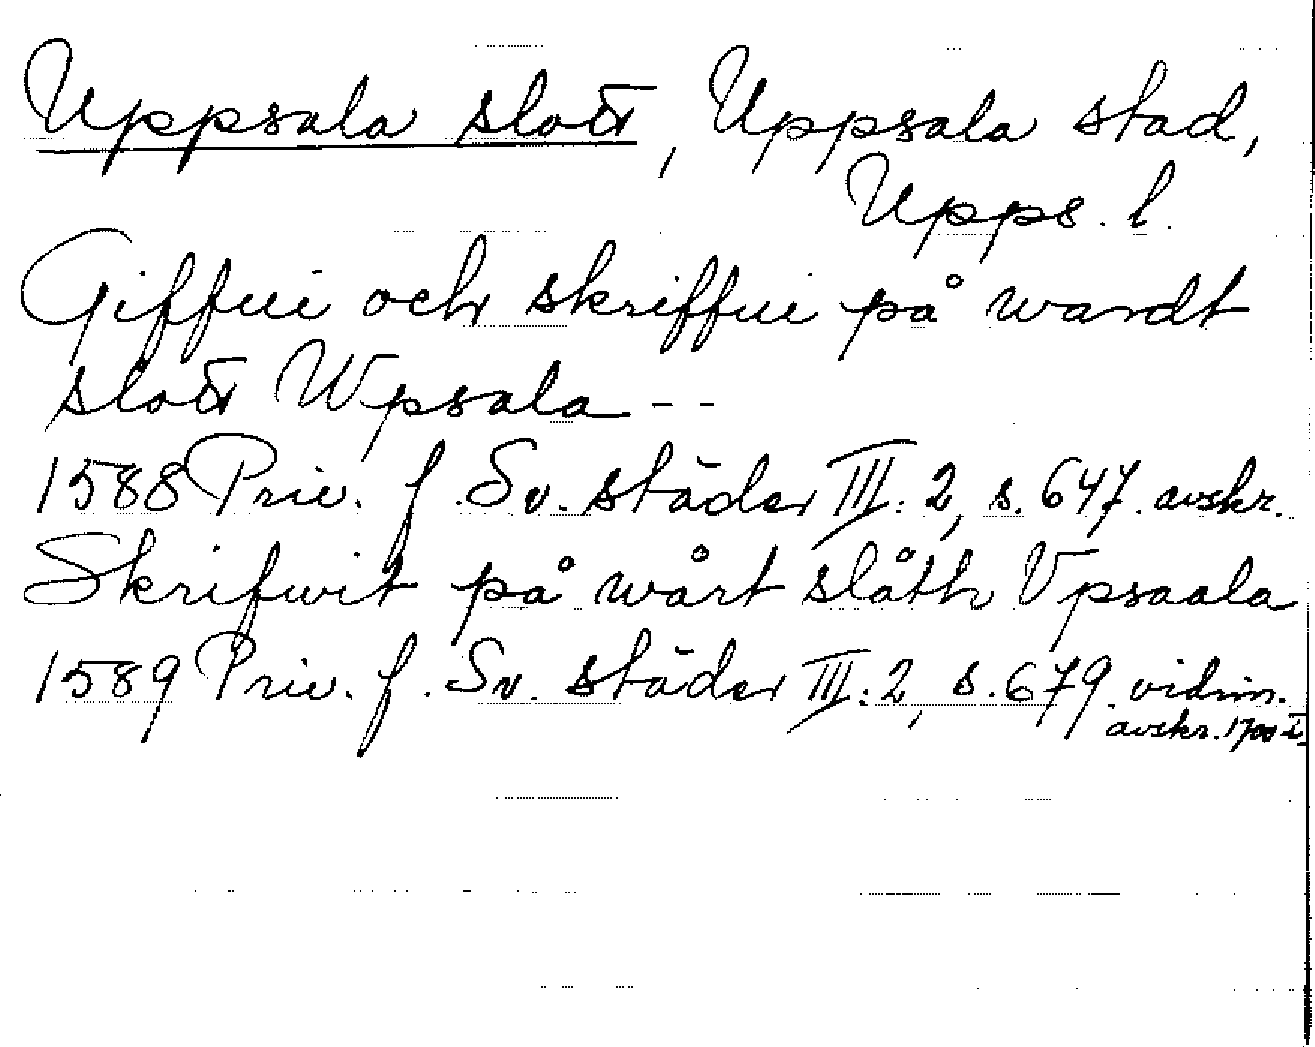 Uppsala slott, Uppsala stad,
Upps. l.
Giffui och skriffui på wardt
slott Wpsala --
1588 Priv. f. Sv. städer III:2, s. 647. avskr.
Skrifwit på wårt slåth Vpsaala
1589 Priv. f. Sv. städer III:2, s. 679. vidim.
avskr. 1700-t.